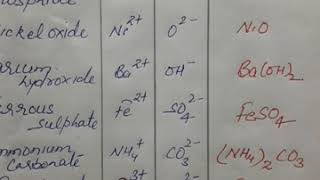 Nickel oxide Ni²⁺ O²⁻ NiO
Barium hydroxide Ba²⁺ OH⁻ Ba(OH)₂
Ferrous sulphate Fe²⁺ SO₄²⁻ FeSO₄
Ammonium Carbonate NH₄⁺ CO₃²⁻ (NH₄)₂CO₃